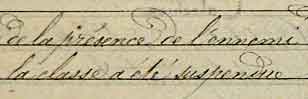 de la présence de l'ennemi
la classe a été suspendue